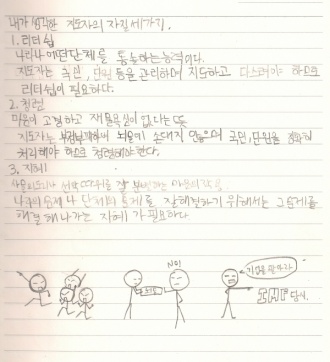 내가 생각한 지도자의 자질 세가지.
1. 리더쉽
나라나 어떤단체를 통솔하는능력이다.
지도자는 국민, 단원 등을 관리하며 지도하고 다스려야 하므로
리더쉽이 필요하다.
2. 청렴
마음이 고결하고 재물욕심이 없다는 뜻
지도자는 뇌물에 손대지 않음으로 국민, 단원을
처리해야 하므로 청렴해야한다.
3. 지혜
사물의 잘 마음의 작용
나라의 문제나 단체의 문제를 잘해결하기 위해서는 그 문제를
해결해나가는 지혜가 필요하다.
NO!
뇌물
IMF 당시.